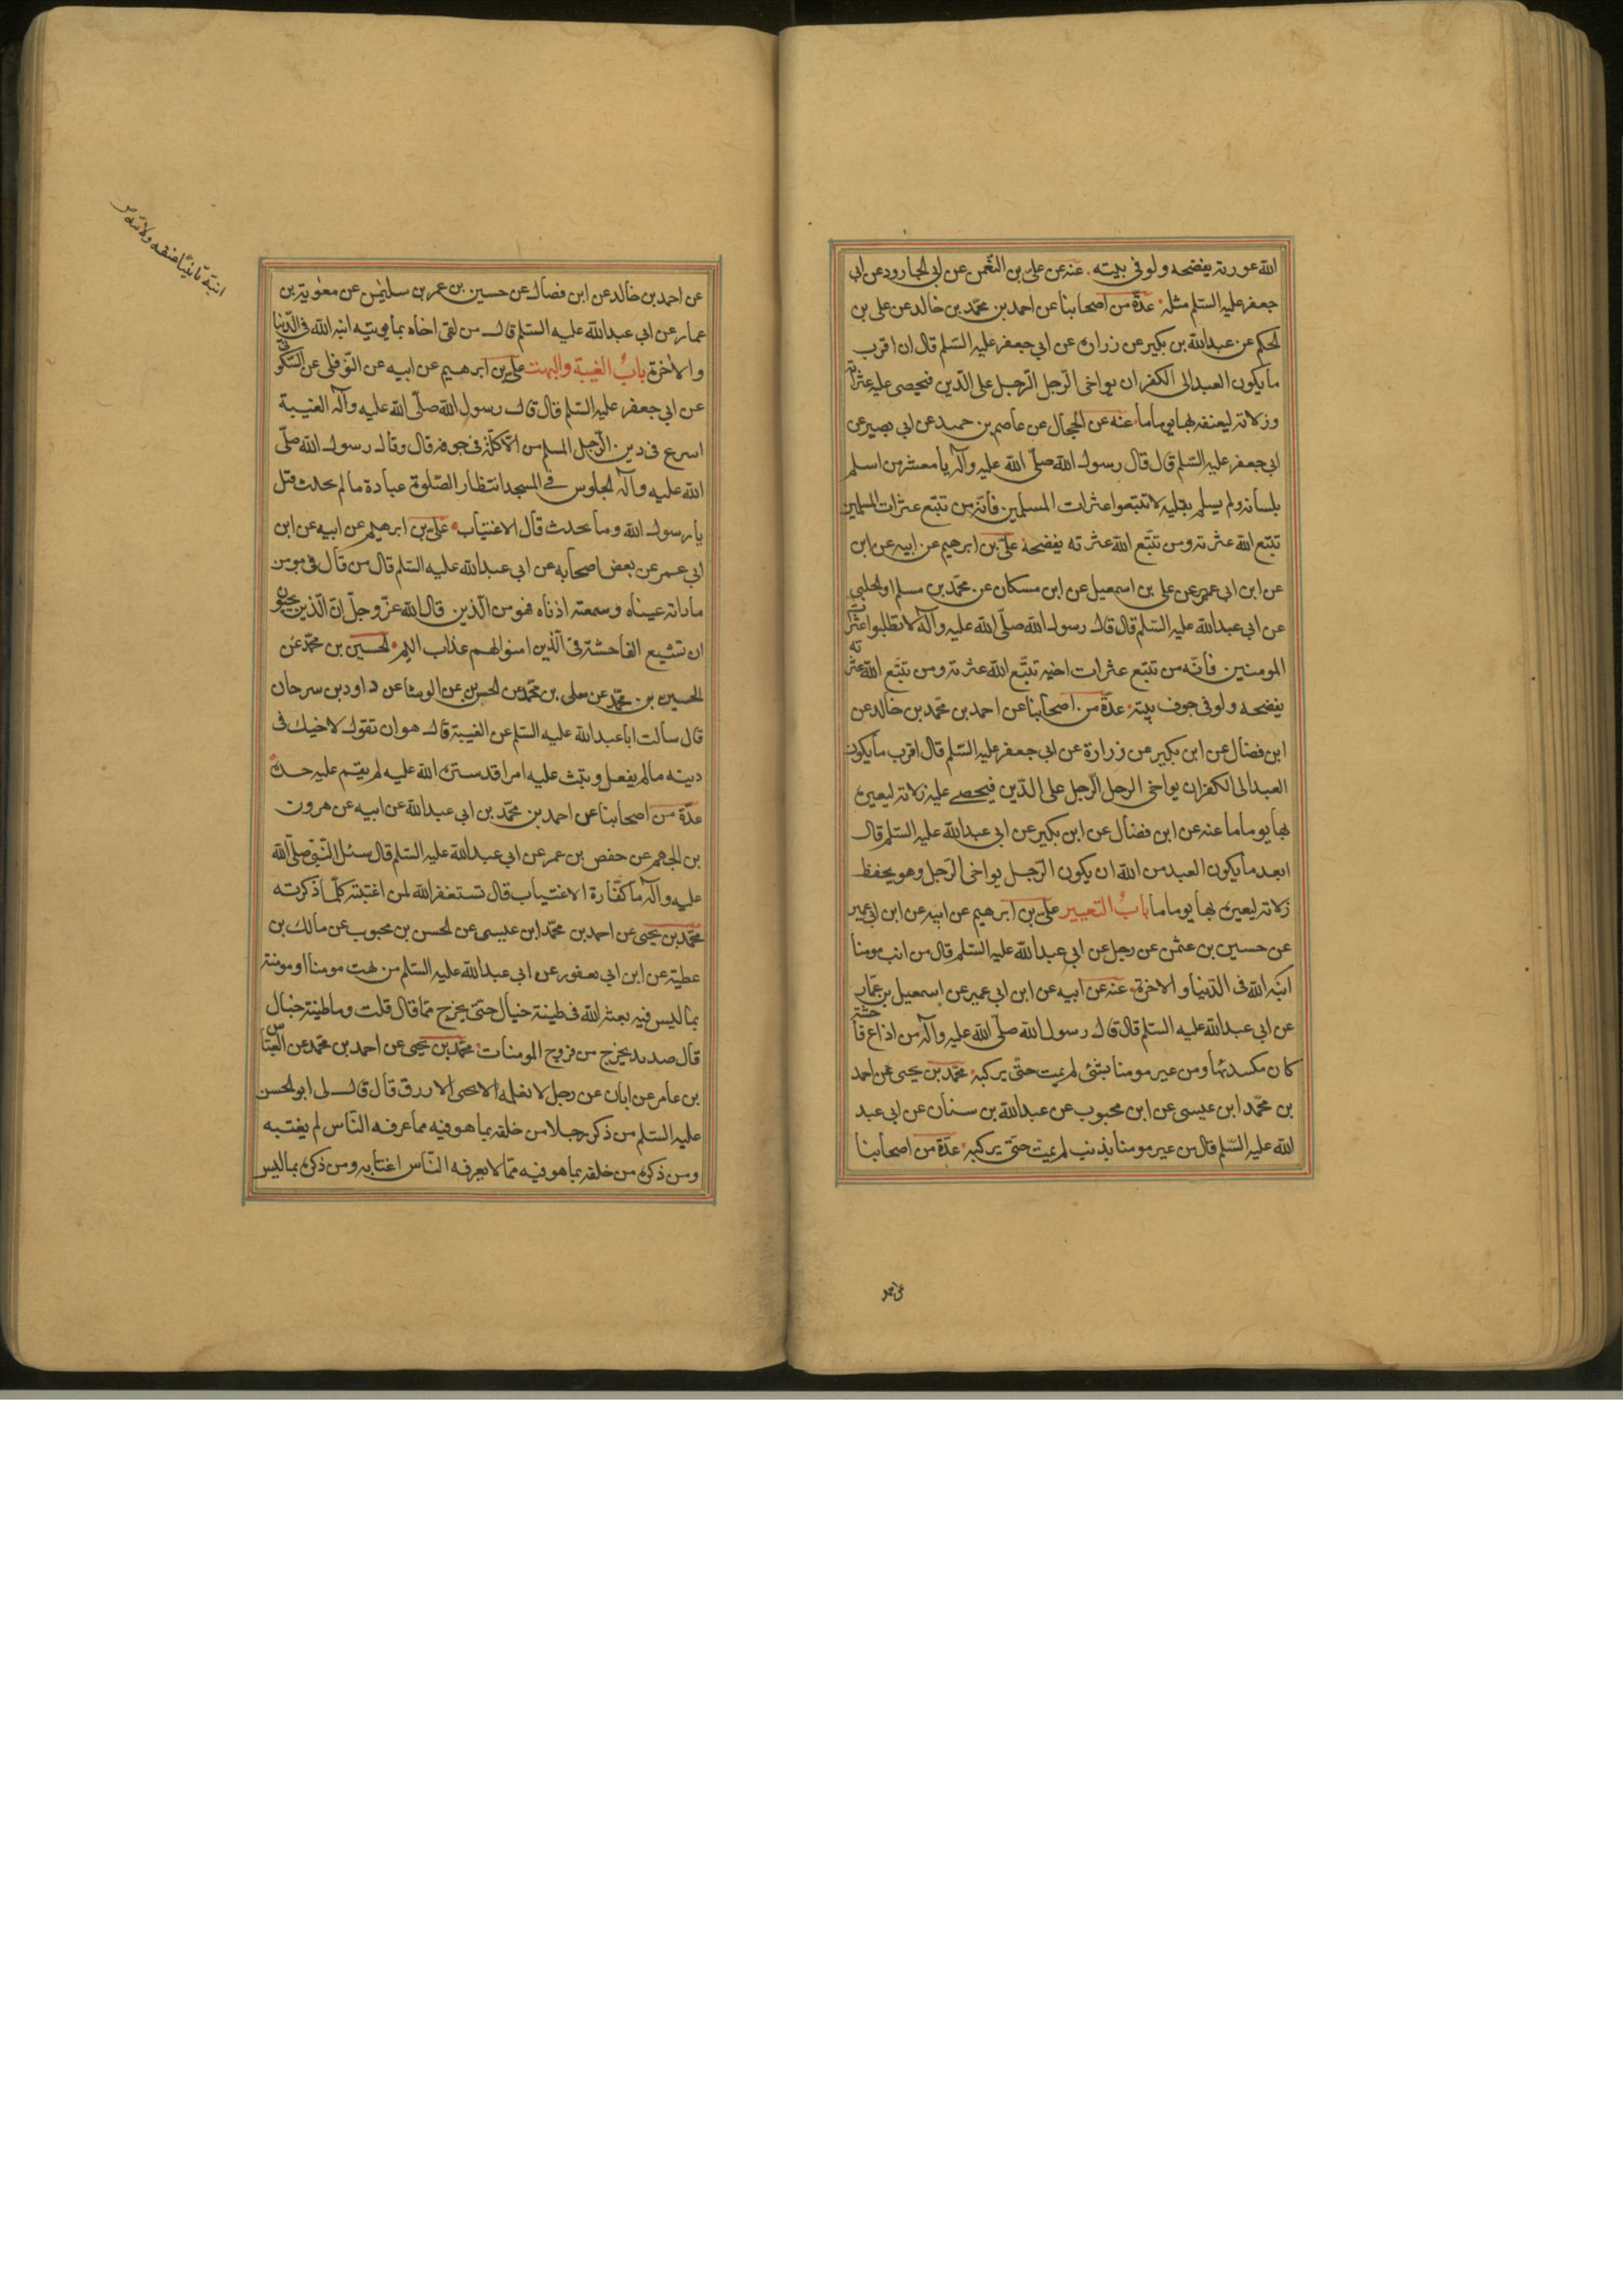 الله عورته يفضحه ولو في بيته عنه عن علي بن النعمن عن ابي الجارود عن ابي
جعفر عليه السّلم مثله عدّة من اصحابنا عن احمد بن محمّد بن خالد عن علي بن
الحكم عن عبدالله بن بكير عن زراره عن ابي جعفر عليه السّلم قال ان اقرب
ما يكون العبد الى الكفر ان يواخي الرّجل الرّجل على الدّين فيحصى عليه عثراته
وزلاته ليعنفه بها يوما ما عنه عن الحجال عن عاصم بن حميد عن ابي بصير عن
ابي جعفر عليه السّلم قال قال رسول الله صلّى الله عليه وآله يا معشر من اسلم
بلسانه ولم يسلم بقلبه لا تتبعوا عثرات المسلمين فانّه من تتبّع عثرات المسلمين
تتبّع الله عثرته ومن تتبّع الله عثرته يفضحه علي بن ابرهيم عن ابيه عن ابن
عن ابن ابي عمير عن علي بن اسمعيل عن ابن مسكان عن محمّد بن مسلم او الحلبي
عن ابي عبدالله عليه السّلم قال قال رسول الله صلّى الله عليه وآله لا تطلبوا عثرات
المومنين فانّه من تتبّع عثرات اخيه تتبّع الله عثرته ومن تتبّع الله عثرته
يفضحه ولو في جوف بيته عدّة من اصحابنا عن احمد بن محمّد بن خالد عن
ابن فضال عن ابن بكير عن زرارة عن ابي جعفر عليه السّلم قال اقرب ما يكون
العبد الى الكفر ان يواخي الرجل الرّجل على الدّين فيحصي عليه زلاته ليعيره
بها يوما ما عنه عن ابن فضال عن ابن بكير عن ابي عبدالله عليه السّلم قال
ابعد ما يكون العبد من الله ان يكون الرّجل يواخي الرّجل وهو يحفظ
زلاته ليعيره بها يوما ما بابُ التعيير علي بن ابرهيم عن ابيه عن ابن ابي عمير
عن حسين بن عثمن عن رجل عن ابي عبدالله عليه السّلم قال من انب مومنا
انبّه الله في الدّنيا والاخرة عنه عن ابيه عن ابن ابي عمير عن اسمعيل بن عمّار
عن ابي عبدالله عليه السّلم قال قال رسول الله صلّى الله عليه وآله من اذاع فاحشة
كان كمبتدئها ومن عير مومنا بشئ لم يمت حتّى يركبه محمّد بن يحيى عن احمد
بن محمّد ابن عيسى عن ابن محبوب عن عبدالله بن سنان عن ابي عبد
الله عليه السّلم قال من عير مومنا بذنب لم يمت حتّى يركبه عدّة من اصحابنا
عن احمد بن خالد عن ابن فضال عن حسين بن عمر بن سليمن عن معوية بن
عمار عن ابي عبدالله عليه السّلم قال من لقى اخاه بما يونبه انبه الله في الدّنيا
والاخرة بابُ الغيبة والبهت علي بن ابرهيم عن ابيه عن النّوفلي عن السّكوني
عن ابي جعفر عليه السّلم قال قال رسول الله صلّى الله عليه وآله الغيبة
اسرع في دين الرّجل المسلم من الاكلة في جوفه قال وقال رسول الله صلّى
الله عليه وآله الجلوس في المسجد انتظار الصّلوة عبادة ما لم يحدث قيل
يا رسول الله وما يحدث قال الاغتياب علي بن ابرهيم عن ابيه عن ابن
ابي عمير عن بعض اصحابه عن ابي عبدالله عليه السّلم قال من قال في مومن
ما راته عيناه وسمعته اذناه فهو من الّذين قال الله عزّ وجلّ انّ الّذين يحبّون
ان تشيع الفاحشة في الّذين امنوا لهم عذاب اليم الحسين بن محمّد عن
الحسين بن محمّد عن معلى بن محمّد عن الحسن بن عن الوشا عن داود بن سرحان
قال سالت ابا عبدالله عليه السّلم عن الغيبة قال هو ان تقول لاخيك في
دينه ما لم يفعل وتبث عليه امرا قد ستره الله عليه لم يقم عليه حدّ
عدّة من اصحابنا عن احمد بن محمّد بن ابي عبدالله عن ابيه عن هرون
بن الجهم عن حفص بن عمر عن ابي عبدالله عليه السّلم قال سئل النّبيّ صلّى الله
عليه وآله ما كفّارة الاغتياب قال تستغفر الله لمن اغتبته كلّما ذكرته
محمّد بن يحيى عن احمد بن محمّد ابن عيسى عن الحسن بن محبوب عن مالك بن
عطية عن ابن ابي يعفور عن ابي عبدالله عليه السّلم من بهت مومنا او مومنة
بما ليس فيه بعثه الله في طينة خبال حتّى يخرج ممّا قال قلت وما طينة خبال
قال صديد يخرج من فروج المومنات محمّد بن يحيى عن احمد بن محمّد عن العبّاس
بن عامر عن ابان عن رجل لا نعلمه الا يحيى الازرق قال قال لي ابو الحسن
عليه السّلم من ذكر رجلا من خلفه بما هو فيه مما عرفه النّاس لم يغتبه
ومن ذكره من خلفه بما هو فيه ممّا لا يعرفه النّاس اغتابه ومن ذكره بما ليس